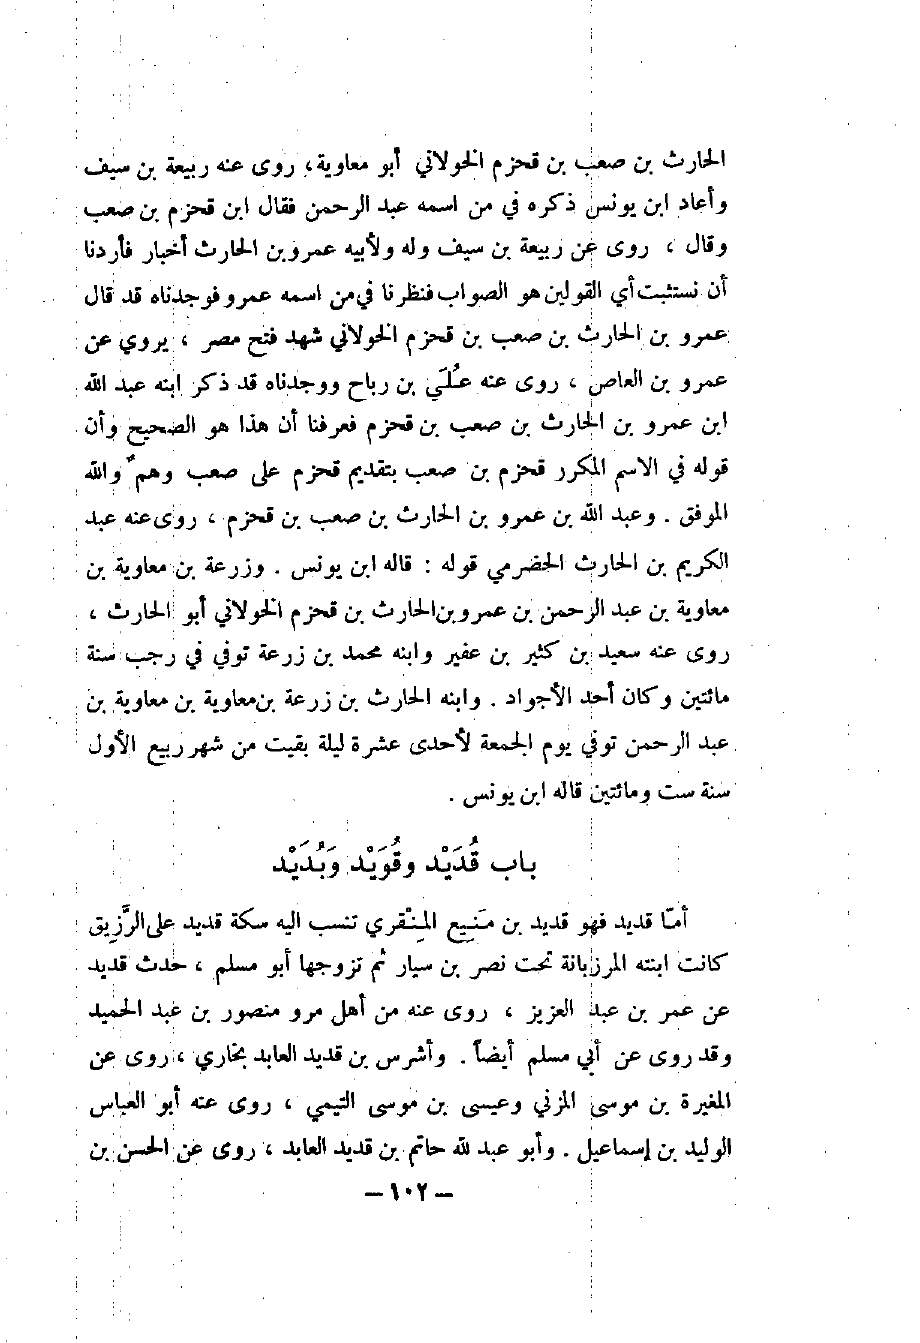 الحارث بن صعب بن قحزم الخولاني أبو معاوية، روى عنه ربيعة بن سيف
وأعاد ابن يونس ذكره في من اسمه عبد الرحمن فقال ابن قحزم بن صعب
وقال ، روى عن ربيعة بن سيف وله ولأبيه عمرو بن الحارث أخبار فأردنا
أن نستثبت أي القولين هو الصواب فنظرنا في من اسمه عمرو فوجدناه قد قال
عمرو بن الحارث بن صعب بن قحزم الخولاني شهد فتح مصر ، يروي عن
عمرو بن العاص ، روى عنه عُلَي بن رباح ووجدناه قد ذكر ابنه عبد الله
ابن عمرو بن الحارث بن صعب بن قحزم فعرفنا أن هذا هو الصحيح وأن
قوله في الاسم المكرر قحزم بن صعب بتقديم قحزم على صعب وهمٌ والله
الموفق . وعبد الله بن عمرو بن الحارث بن صعب بن قحزم ، روى عنه عبد
الكريم بن الحارث الحضرمي قوله : قاله ابن يونس . وزرعة بن معاوية بن
معاوية بن عبد الرحمن بن عمرو بن الحارث بن قحزم الخولاني أبو الحارث ،
روى عنه سعيد بن كثير بن عفير وابنه محمد بن زرعة توفي في رجب سنة
مائتين وكان أحد الأجواد . وابنه الحارث بن زرعة بن معاوية بن معاوية بن
عبد الرحمن توفي يوم الجمعة لأحدى عشرة ليلة بقيت من شهر ربيع الأول
سنة ست ومائتين قاله ابن يونس .
باب قُدَيْد وقُوَيْد وَبُدَيْد
أمّا قديد فهو قديد بن مَنِيع المِنْقري تنسب اليه سكة قديد على الرَّزِيق
كانت ابنته المرزبانة تحت نصر بن سيار ثم تزوجها أبو مسلم ، حدث قديد
عن عمر بن عبد العزيز ، روى عنه من أهل مرو منصور بن عبد الحميد
وقد روى عن أبي مسلم أيضاً . وأشرس بن قديد العابد بخاري ، روى عن
المغيرة بن موسى المزني وعيسى بن موسى التيمي ، روى عنه أبو العباس
الوليد بن إسماعيل . وأبو عبد لله حاتم بن قديد العابد ، روى عن الحسن بن
– ١٠٢ –